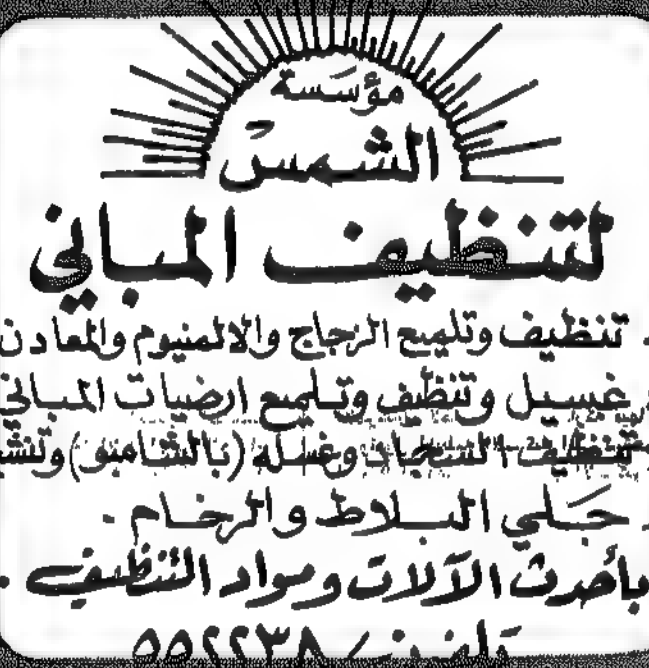 مؤسسة
الشمس
لتنظيف المباني
. تنظيف وتلميع الزجاج والالمنيوم والمعادن
غسيل وتنظيف وتلميع ارضيات المباني
تنظيف السجاد وغسله (بالشامبو)
. جلي البلاط والرخام .
بأحدث الآلات ومواد التنظيف .
تلفون / ٥٥٢٢٣٨